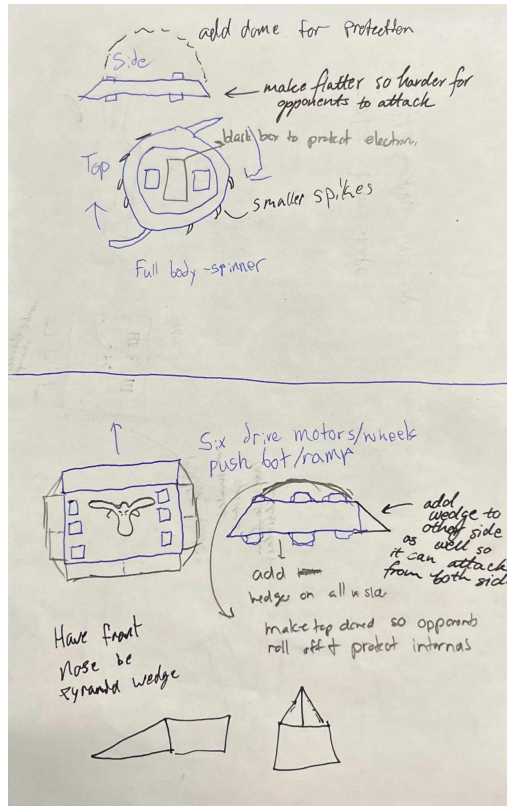 add dome for protection
Side
make flatter so harder for
opponents to attack
black box to protect electron.
Top
smaller spikes
Full body-spinner
Six drive motors/wheels
push bot/ramp
add
wedge to
other side
as well so
it can attack
from both side
add
wedges on all
make top domed so opponents
roll off & protect internals
Have front
nose be
pyramid wedge